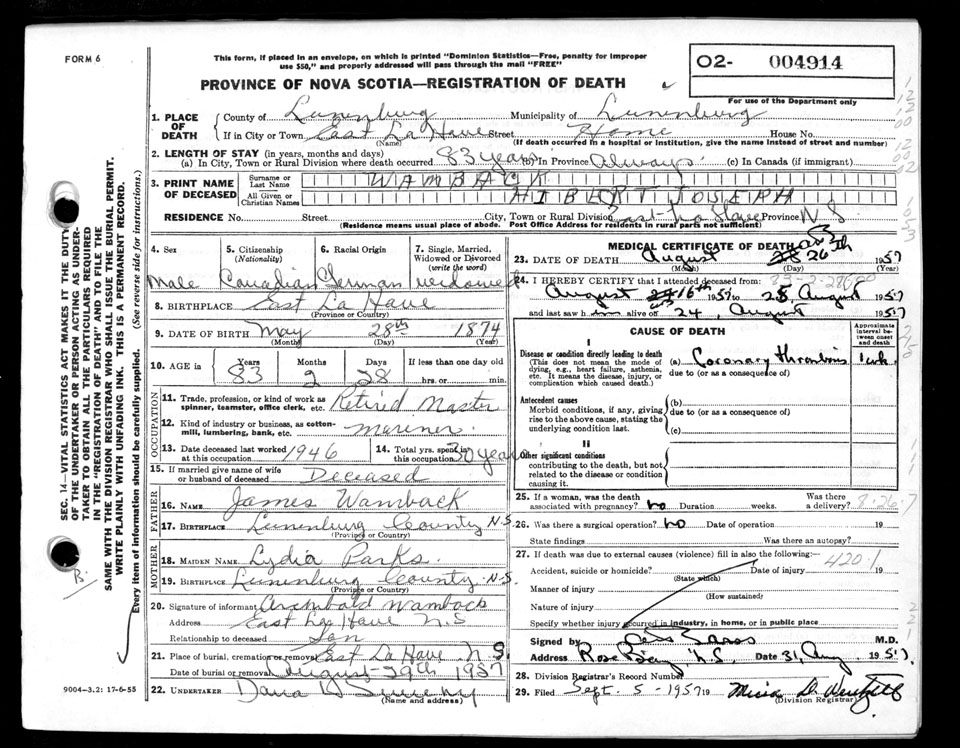 FORM 6
This form, if placed in an envelope, on which is printed "Dominion Statistics—Free, penalty for improper
use $50," and properly addressed will pass through the mail "FREE"
O2- 004914
PROVINCE OF NOVA SCOTIA—REGISTRATION OF DEATH
For use of the Department only
1. PLACE OF DEATH
County of Lunenburg Municipality of Lunenburg
If in City or Town East La Have Street Home House No.
(Name) (If death occurred in a hospital or institution, give the name instead of street and number)
2. LENGTH OF STAY (in years, months and days)
(a) In City, Town or Rural Division where death occurred 83 years (b) In Province Always (c) In Canada (if immigrant)
3. PRINT NAME OF DECEASED
Surname or Last Name WAMBACK
All Given or Christian Names HIBERT JOSEPH
RESIDENCE No. Street City, Town or Rural Division East La Have Province N S
(Residence means usual place of abode. Post Office Address for residents in rural parts not sufficient)
4. Sex Male
5. Citizenship (Nationality) Canadian
6. Racial Origin German
7. Single, Married, Widowed or Divorced (write the word) widowed
8. BIRTHPLACE East La Have
(Province or Country)
9. DATE OF BIRTH May 28th 1874
(Month) (Day) (Year)
10. AGE in Years 83 Months 2 Days 28 If less than one day old hrs. or min.
OCCUPATION
11. Trade, profession, or kind of work as spinner, teamster, office clerk, etc. Retired Master
12. Kind of industry or business, as cotton-mill, lumbering, bank, etc. Mariner
13. Date deceased last worked at this occupation 1946
14. Total yrs. spent in this occupation 30 years
15. If married give name of wife or husband of deceased Deceased
FATHER
16. NAME James Wamback
17. BIRTHPLACE Lunenburg County N.S.
(Province or Country)
MOTHER
18. MAIDEN NAME Lydia Parks.
19. BIRTHPLACE Lunenburg County N.S.
(Province or Country)
20. Signature of informant Archibald Wamback
Address East La Have N.S
Relationship to deceased Son
21. Place of burial, cremation or removal East La Have N.S.
Date of burial or removal August 29th 1957
22. UNDERTAKER Dana
(Name and address)
MEDICAL CERTIFICATE OF DEATH
23. DATE OF DEATH August 26th 1957
(Month) (Day) (Year)
24. I HEREBY CERTIFY that I attended deceased from:
August 16th 1957 to 25, August 1957
and last saw him alive on 24, August 1957
CAUSE OF DEATH
Approximate interval between onset and death
I
Disease or condition directly leading to death (a) Coronary thrombosis 1 wk
(This does not mean the mode of dying, e.g., heart failure, asthenia, etc. It means the disease, injury, or complication which caused death.)
due to (or as a consequence of)
Antecedent causes (b)
Morbid conditions, if any, giving rise to the above cause, stating the underlying condition last.
due to (or as a consequence of)
(c)
II
Other significant conditions
contributing to the death, but not related to the disease or condition causing it.
25. If a woman, was the death associated with pregnancy? no Duration weeks. Was there a delivery? 8-26-7
26. Was there a surgical operation? no Date of operation 19
State findings Was there an autopsy?
27. If death was due to external causes (violence) fill in also the following:—
Accident, suicide or homicide? Date of injury 420.1 19
(State which)
Manner of injury
(How sustained)
Nature of injury
Specify whether injury occurred in industry, in home, or in public place
Signed by M.D.
Address Rose Bay N.S. Date 31, Aug 1957.
28. Division Registrar's Record Number
29. Filed Sept. 5 - 1957 19
(Division Registrar)
9004-3.2: 17-6-55
SEC. 14—VITAL STATISTICS ACT MAKES IT THE DUTY
OF THE UNDERTAKER OR PERSON ACTING AS UNDER-
TAKER TO OBTAIN ALL THE PARTICULARS REQUIRED
IN THE "REGISTRATION OF DEATH" AND TO FILE THE
SAME WITH THE DIVISION REGISTRAR WHO SHALL ISSUE THE BURIAL PERMIT.
WRITE PLAINLY WITH UNFADING INK. THIS IS A PERMANENT RECORD.
Every item of information should be carefully supplied. (See reverse side for instructions.)
B.